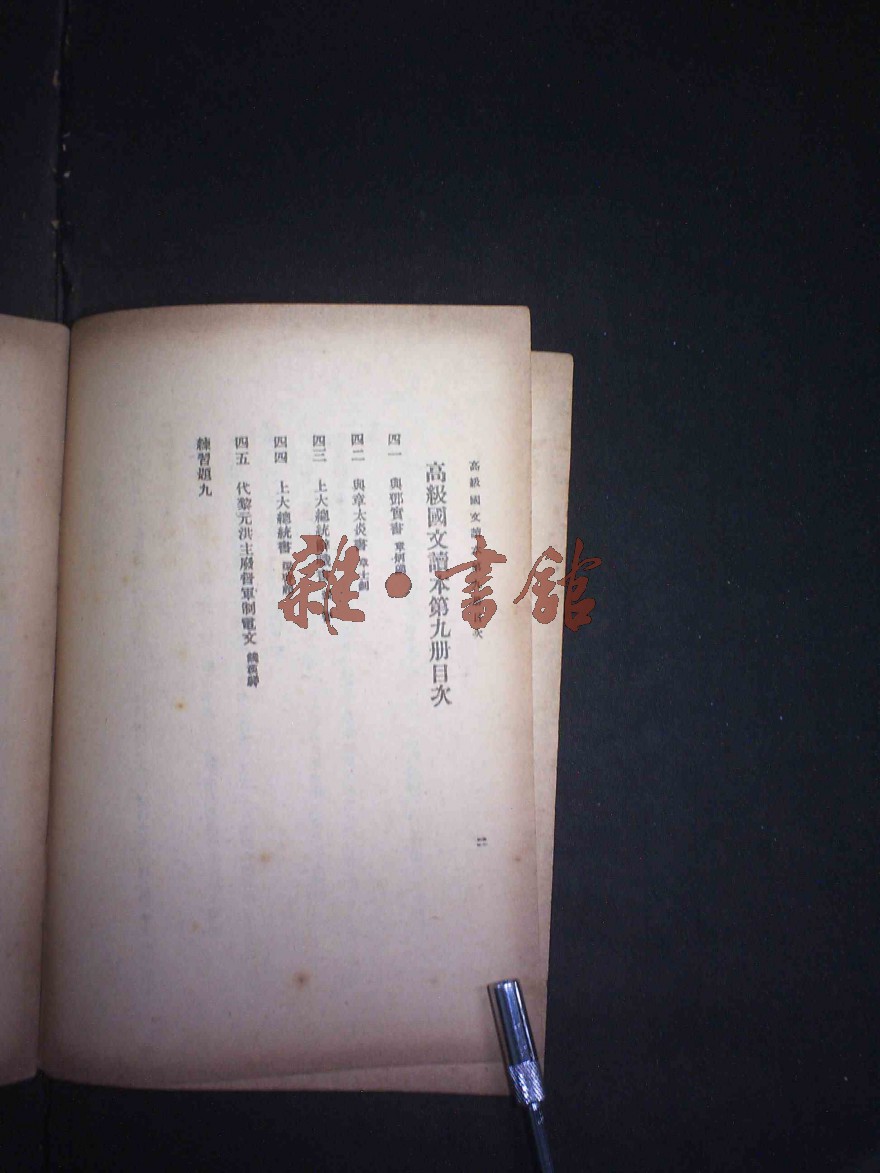 高級國文讀本第九册目次
高級國文讀本第九册目次
四一 與鄧實書 章炳麟
四二 與章太炎書 章士釗
四三 上大總統
四四 上大總統書
四五 代黎元洪主廢督軍制電文 饒漢祥
練習題九
二
雜·書館